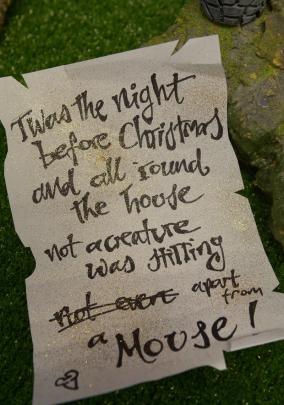 Twas the night
before Christmas
and all 'round
the house
not a creature
was stirring
not even apart
from
a Mouse!